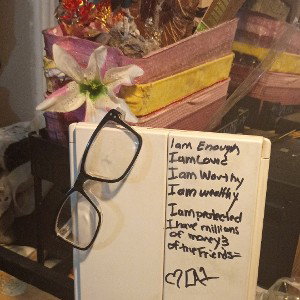 Iam Enough
IamLove
Iam Worthy
Iam wealthy
Iam protected
I have millions
of money &
of true Friends